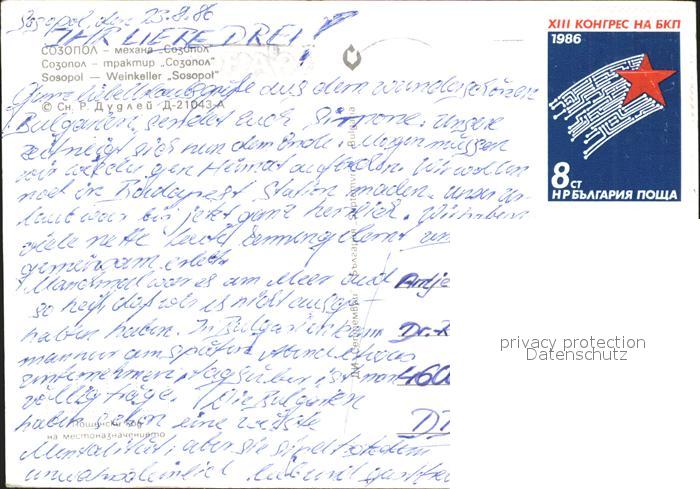 Sosopol, den 23.8.86
IHR LIEBE DREI!
СОЗОПОЛ — механа „Созопол“
Созопол — трактир „Созопол“
Sosopol — Weinkeller "Sosopol"
© Сн. Р. Дудлей Д-21043-А
Ganz liebe Urlaubsgrüße aus dem wunderschönen
Bulgarien, sendet euch Simone. Unsere
Zeit neigt sich nun dem Ende. Morgen müssen
wir wieder gen Heimat aufbrechen. Wir wollen
noch in Budapest Station machen. Unser Ur-
laub war bis jetzt ganz herrlich. Wir haben
viele nette Leute kennengelernt und
gemeinsam erlebt.
Manchmal war es am Meer auch
so heiß, daß wir es nicht ausge-
halten haben. In Bulgarien kann
man nur am späten Abend etwas
unternehmen, tagsüber ist man
völlig träge. Die Bulgaren
haben schon eine
Mentalität, aber sie sind trotzdem
unwahrscheinlich lieb und gastfre
Пощенски код
на местоназначението
XIII КОНГРЕС НА БКП
1986
8 СТ
НР БЪЛГАРИЯ ПОЩА
Antje
Dr.
4600
privacy protection
Datenschutz